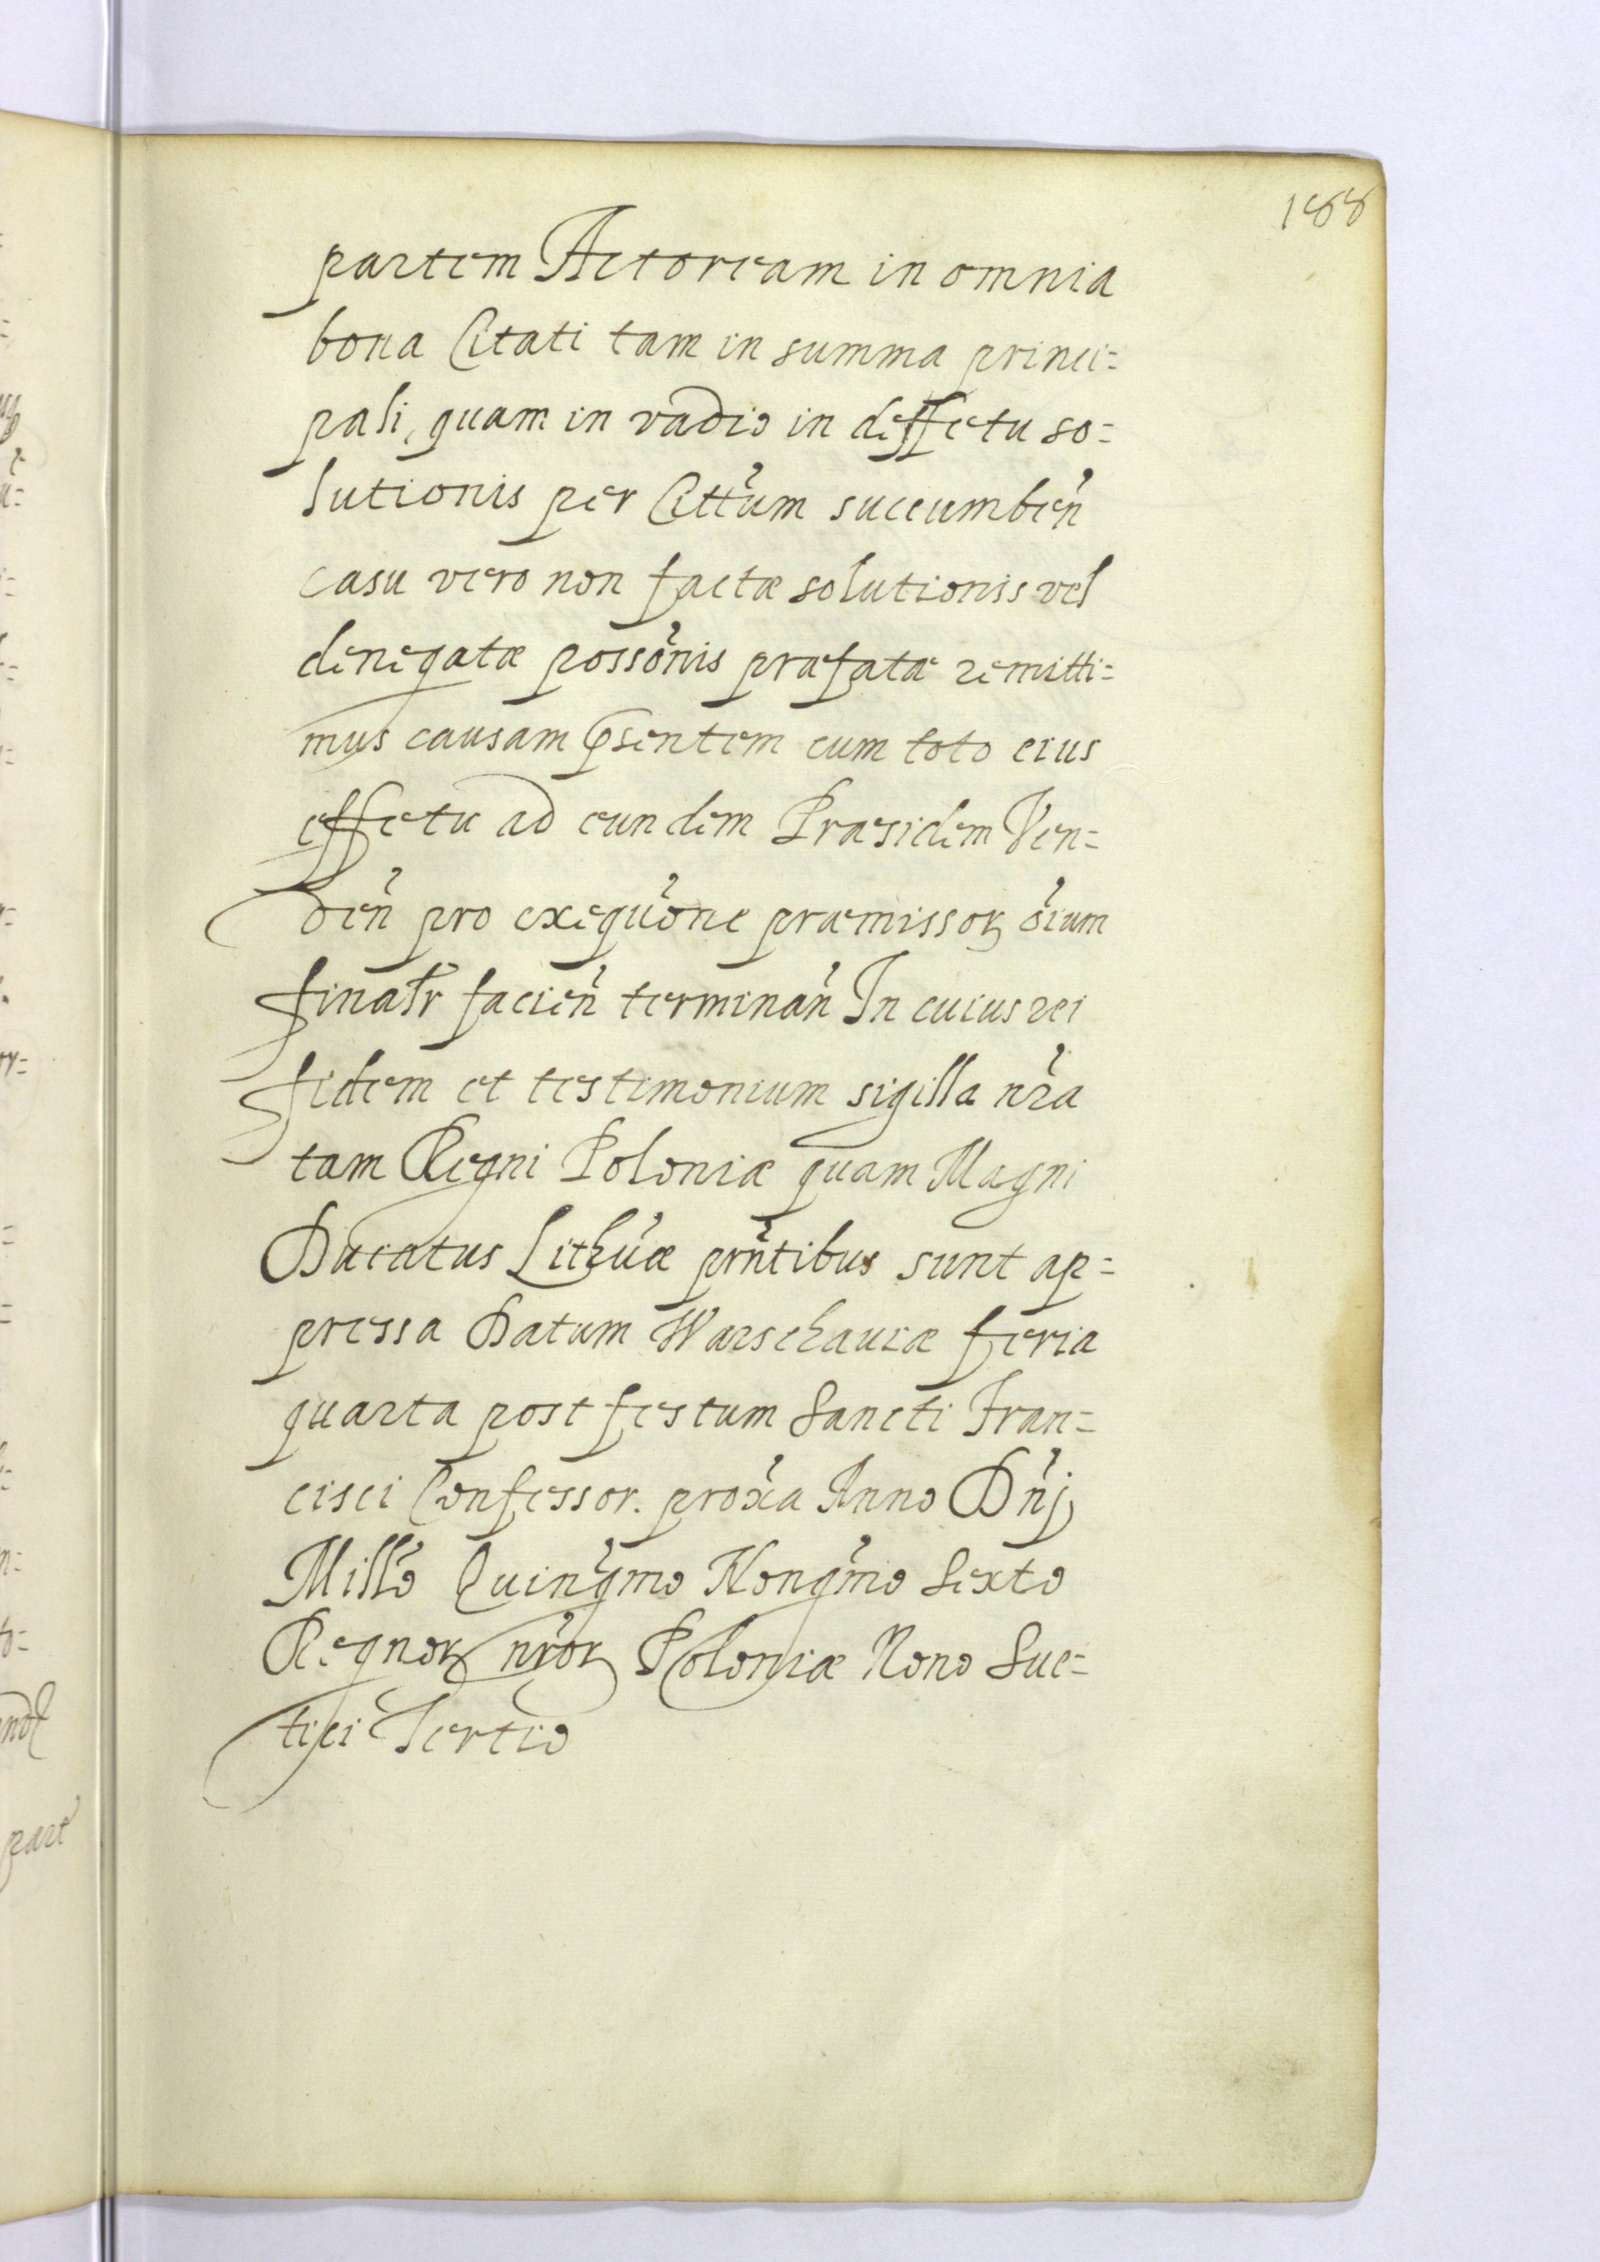 188
partem Actoream in omnia
bona Citati tam in summa princi=
pali, quam in vadio in deffectu so=
lutionis per Citt̃um succumbeñ
casu vero non factæ solutionis vel
denegatæ possõnis præfatæ remitti=
mus causam p̄sentem cum toto eius
effectu ad eundem Præsidem Ven=
deñ pro exequũone præmissoꝝ õium
finalr̃ facieñ terminañ In cuius rei
fidem et testimonium sigilla nr̃a
tam Regni Poloniæ quam Magni
Ducatus Lithũæ prñtibus sunt ap=
pressa Datum Warschauiæ feria
quarta post festum Sancti Fran=
cisci Confessor. prox̃a Anno Dñj
Millõ Quinq̃mo Nonq̃mo Sexto
Regnoꝝ nr̃oꝝ Poloniæ Nono Sue=
tici Tertio
part